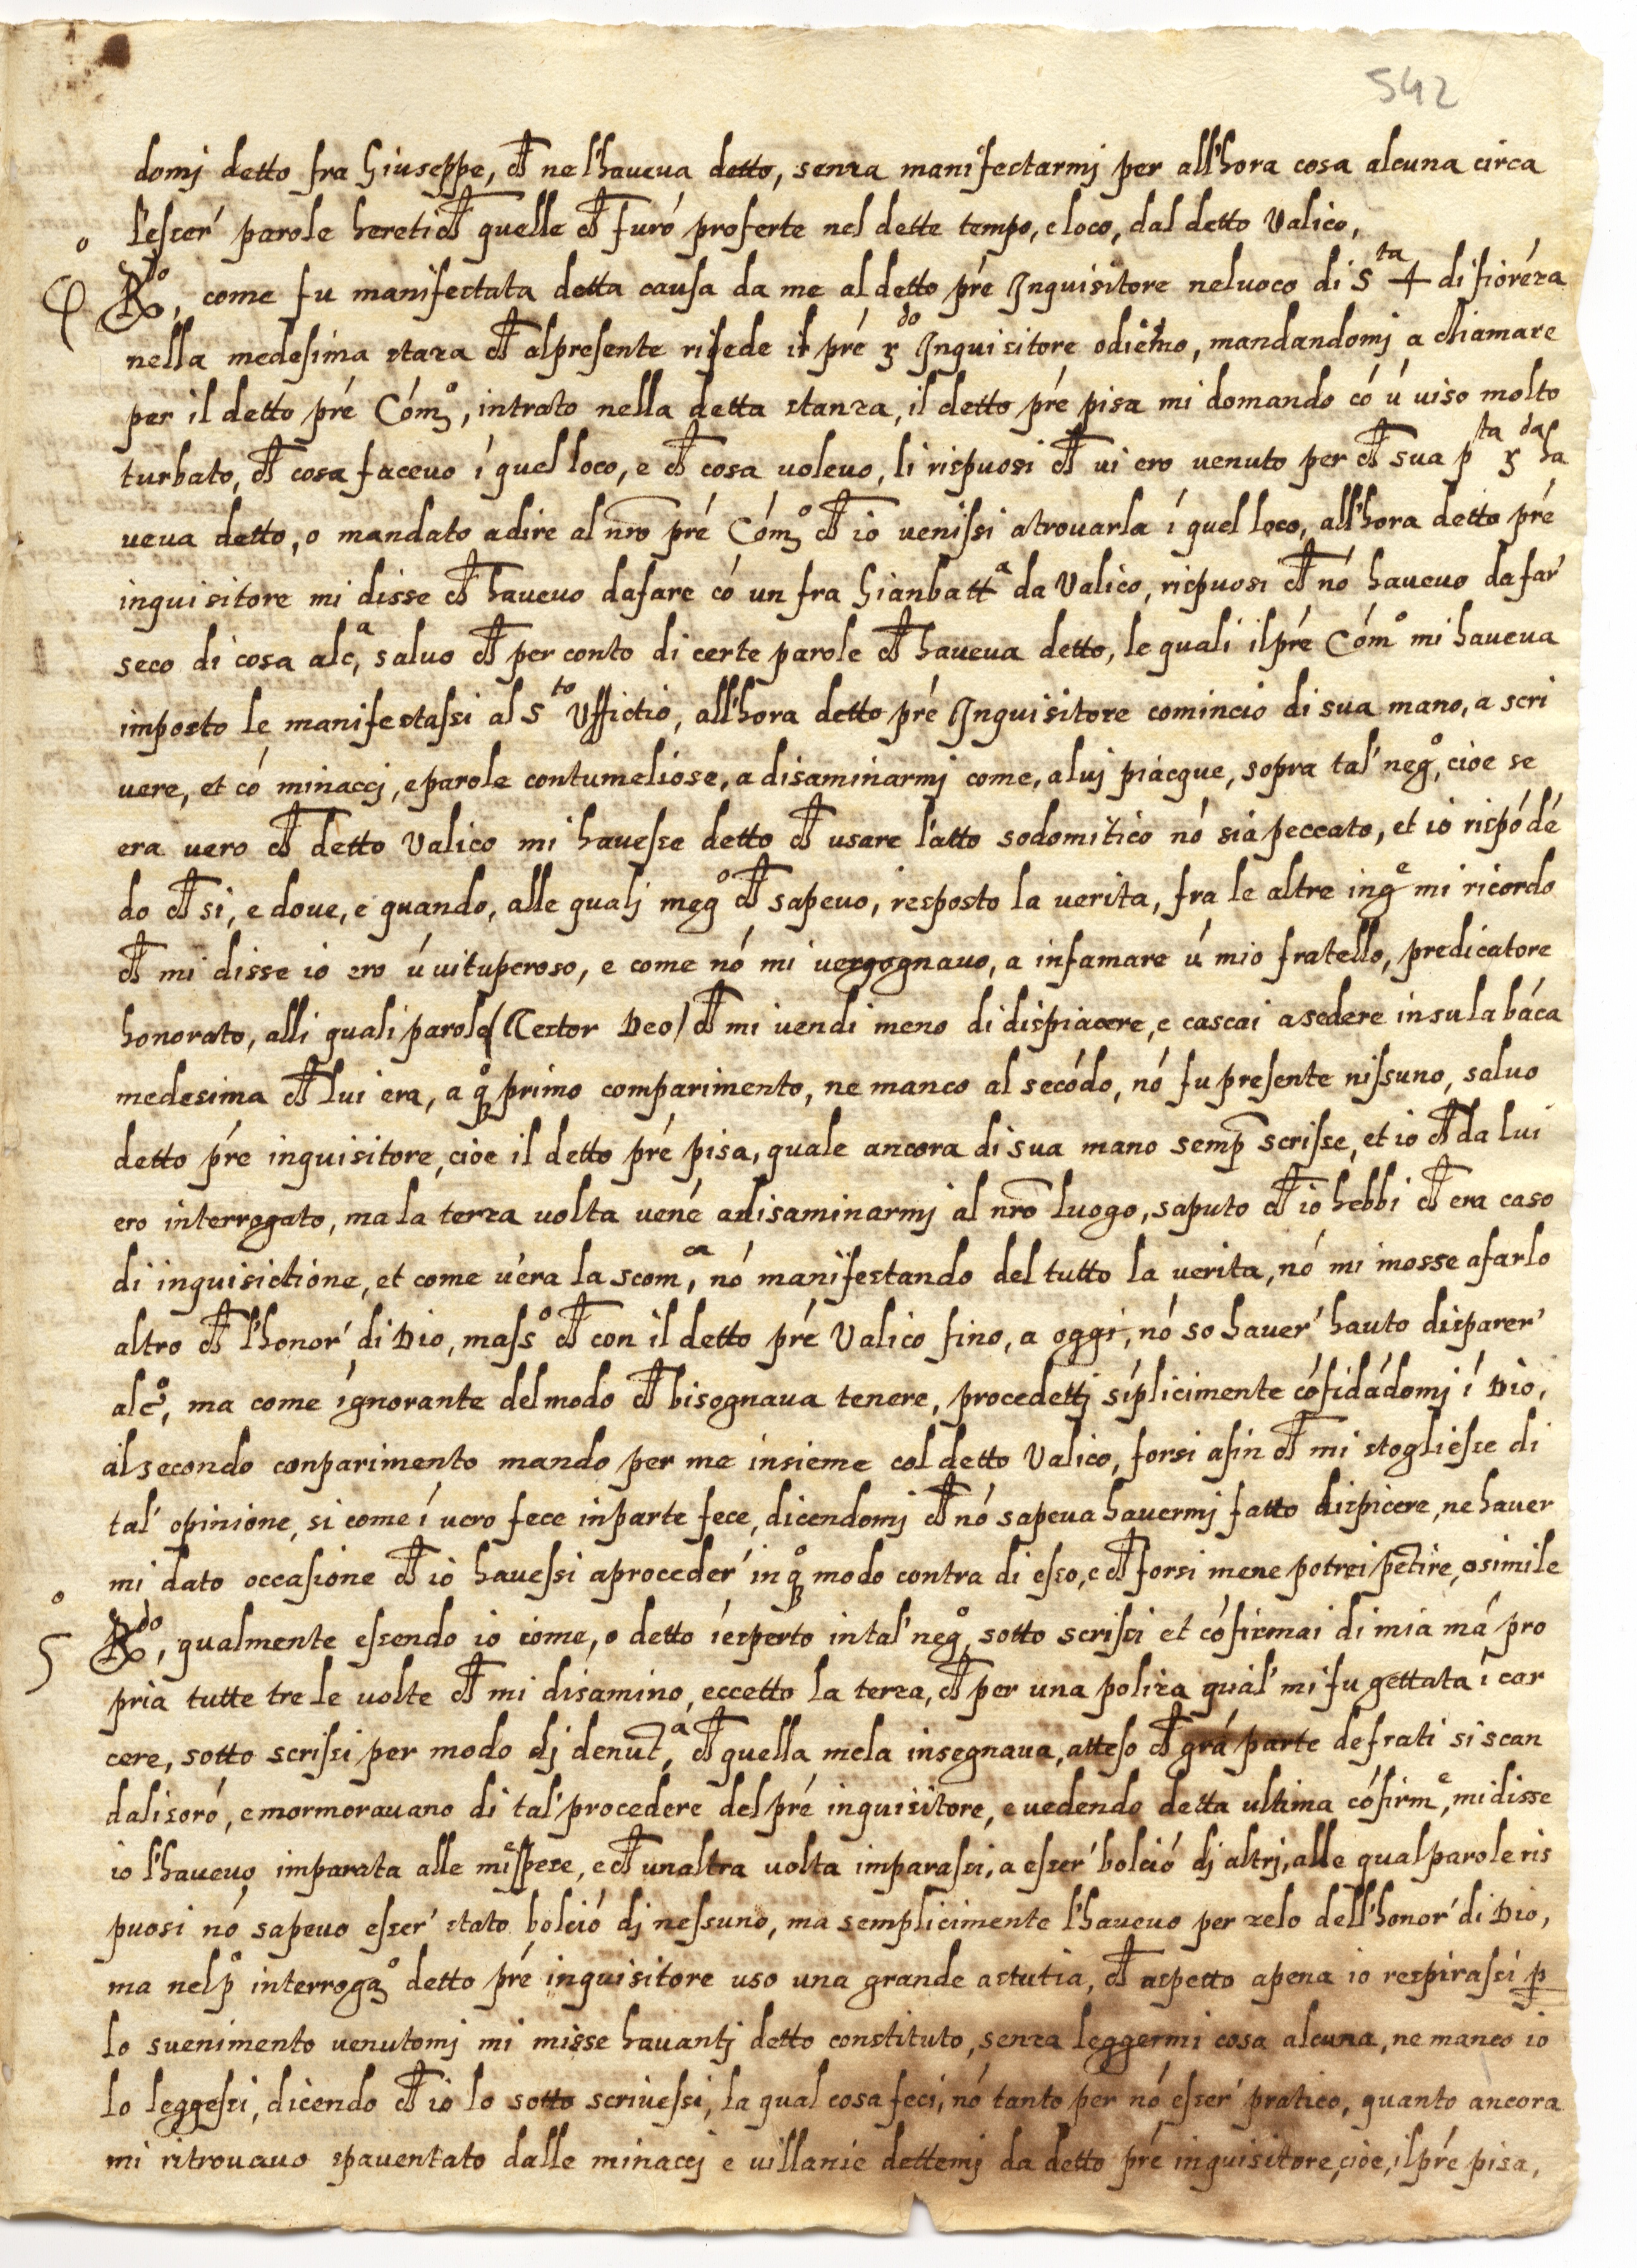 542
domj detto fra Giuseppe, ch nel'haueua detto, senza manifectarmj per all'hora cosa alcuna circa
l'escer' parole heretich quelle ch furó proferte nel dette tempo, e loco, dal detto Valico,
4º Rdo, come fu manifectata detta causa da me al detto pré Inquisitore neluoco di Sta + di fioréza
nella medesima staza ch alpresente risede il pré Rdo Inquisitore odierno, mandandomj a chiamare
per il detto pré Cómo, intrato nella detta stanza, il detto pré pisa mi domando có ú uiso molto
turbato, ch cosa faceuo í quel loco, e ch cosa uoleuo, li rispuosi ch ui ero uenuto per ch sua pta Rda ha
ueua detto, o mandato adire al nro pré Cómo ch io uenissi atrouarla í quel loco, all'hora detto pré
inquisitore mi disse ch haueuo dafare có un fra Gianbatta da Valico, rispuosi ch nó haueuo dafar'
seco di cosa alca, saluo ch per conto di certe parole ch haueua detto, le quali ilpré Cómo mi haueua
imposto le manifestassi al Sto Uffictio, all'hora detto pré Inquisitore comincio di sua mano, a scri
uere, et có minaccj, e parole contumeliose, a disaminarmj come, a luj piacque, sopra tal' nego, cioe se
era uero ch detto Valico mi hauesse detto ch usare l'atto sodomitico nó sia peccato, et io rispó dé
do ch si, e doue, e quando, alle qualj mego ch sapeuo, resposto la uerita, fra le altre inge mi ricordo
ch mi disse io ero ú uituperoso, e come nó mi uergognauo, a infamare ú mio fratello, predicatore
honorato, alli quali parole (Testor Deo) ch mi uendi meno di dispiacere, e cascai asedere insula báca
medesima ch lui era, a qo primo comparimento, ne manco al secódo, nó fu presente nissuno, saluo
detto pré inquisitore, cioe il detto pré pisa, quale ancora di sua mano semp scrisse, et io ch da lui
ero interrogato, ma la terza uolta uené adisaminarmj al nro luogo, saputo ch io hebbi ch era caso
di inquisictione, et come u'era la scomca, nó manifestando del tutto la uerita, nó mi mosse afarlo
altro ch l'honor' di Dio, masso ch con il detto pré Valico fino, a oggi, nó so hauer' hauto disparer'
alco, ma come ignorante delmodo ch bisognaua tenere, procedettj síplicimente cófidádomj í Dio,
alsecondo conparimento mando per me insieme col detto Valico, forsi afin ch mi stogliesse di
tal' opinione, si come í uero fece inparte fece, dicendomj ch nó sapeua hauermj fatto dispicere, ne hauer
mi dato occasione ch io hauessi aproceder' in qo modo contra di esso, e ch forsi mene potrei pétire, o simile
5º Rdo, qualmente essendo io come, o detto íesperto intal' nego, sotto scrissi et cófirmai di mia má pro
pria tutte tre le uolte ch mi disamino, eccetto la terza, ch per una poliza qual' mi fu gettata í car
cere, sotto scrissi per modo dj denuta, ch quella mela insegnaua, atteso ch grá parte defrati si scan
dalizoró, e mormorauano di tal' procedere del pré inquisitore, e uedendo detta ultima cófirme, mi disse
io l'haueuo imparata alle mie spese, e ch unaltra uolta imparassi, a esser' bolció dj altrj, alle qual parole ris
puosi nó sapeuo esser' stato bolció dj nessuno, ma semplicimente l'haueuo per zelo dell'honor' di Dio,
ma nel po interrogamo detto pré inquisitore uso una grande astutia, ch aspetto apena io respirassi p
lo suenimento uenutomj mi misse hauantj detto constituto, senza leggermi cosa alcuna, ne manco io
lo leggessi, dicendo ch io lo sotto scriuessi, la qual cosa feci, nó tanto per nó esser' pratico, quanto ancora
mi ritrouauo spauentato dalle minaccj e uillanie dettemj da detto pré inquisitore, cioe, ilpré pisa,